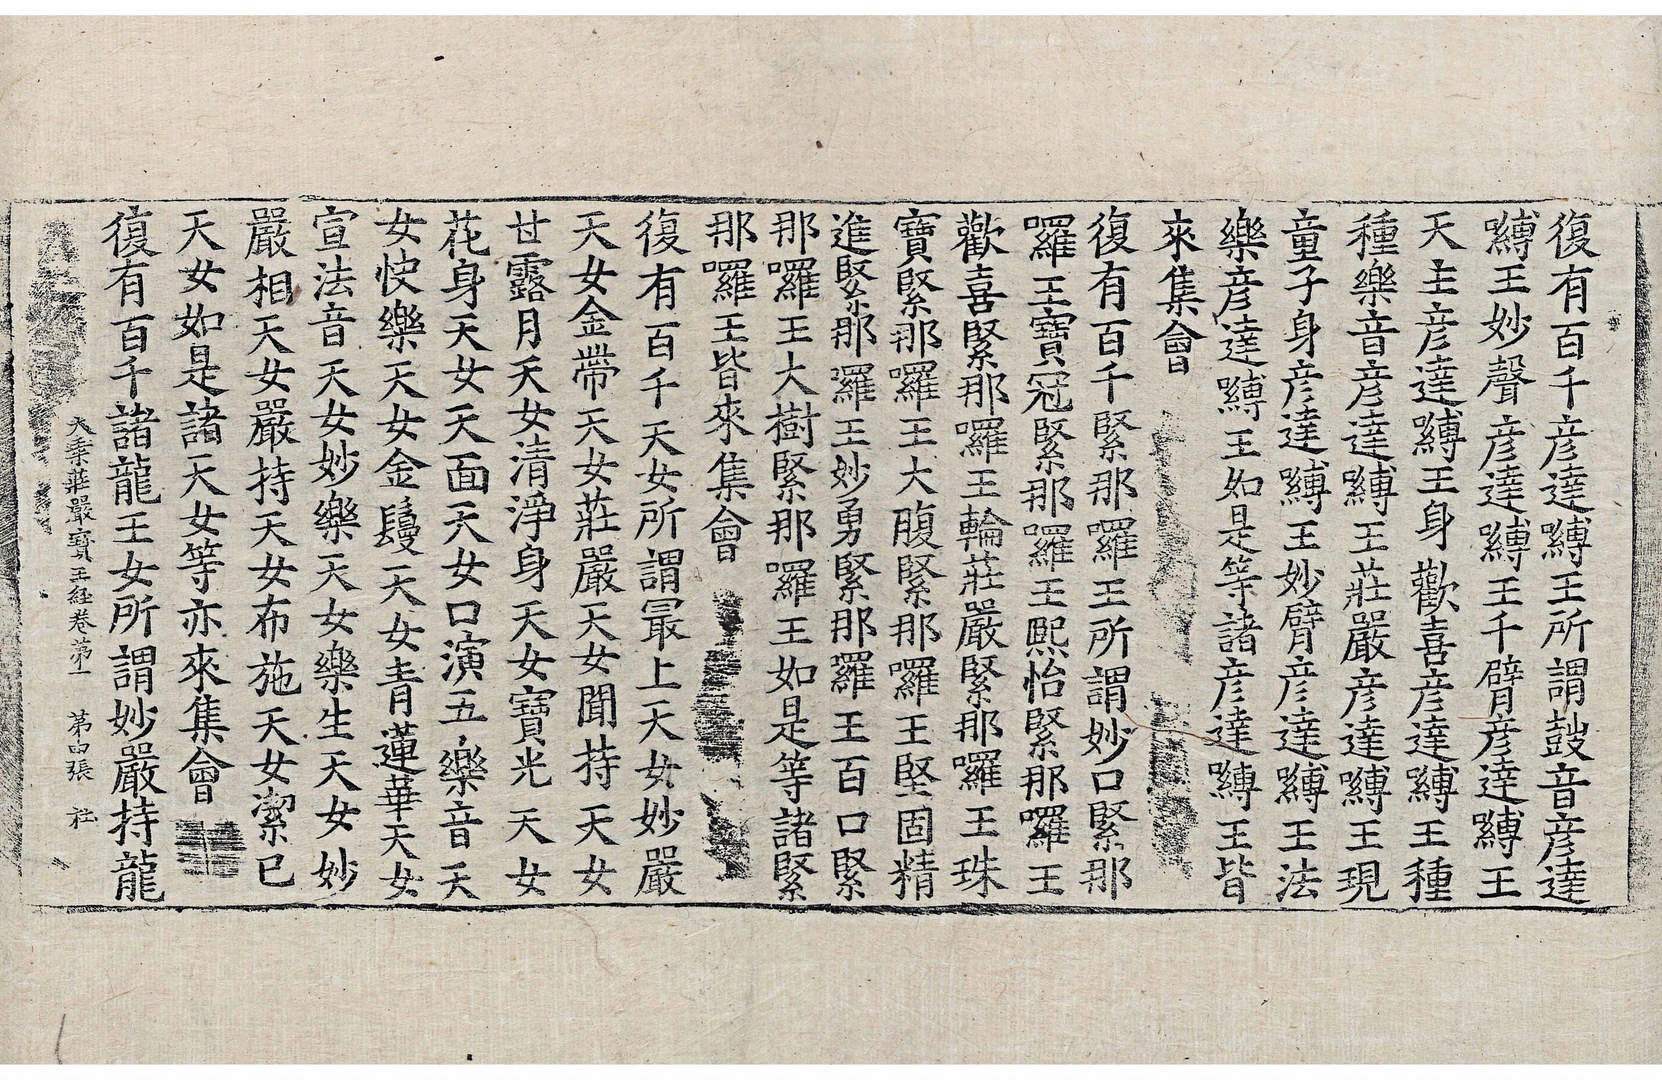 復有百千彦達嚩王所謂鼓音彦達
嚩王妙聲彦達嚩王千臂彦達嚩王
天主彦達嚩王身歡喜彦達嚩王種
種樂音彦達嚩王莊嚴彦達嚩王現
童子身彦達嚩王妙臂彦達嚩王法
樂彦達嚩王如是等諸彦達嚩王皆
來集會
復有百千緊那囉王所謂妙口緊那
囉王寶冠緊那囉王熙怡緊那囉王
歡喜緊那囉王輪莊嚴緊那囉王珠
寶緊那囉王大腹緊那囉王堅固精
進緊那囉王妙勇緊那囉王百口緊
那囉王大樹緊那囉王如是等諸緊
那囉王皆來集會
復有百千天女所謂冣上天女妙嚴
天女金帶天女莊嚴天女聞持天女
甘露月天女清淨身天女寶光天女
花身天女天面天女口演五樂音天
女快樂天女金鬘天女青蓮華天女
宣法音天女妙樂天女樂生天女妙
嚴相天女嚴持天女布施天女潔已
天女如是諸天女等亦來集會
復有百千諸龍王女所謂妙嚴持龍
大乘莊嚴寶王経卷第一 第四張 社